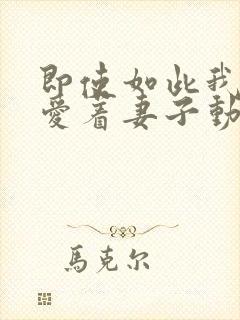 即使如此我
愛着妻子動
馬克尔